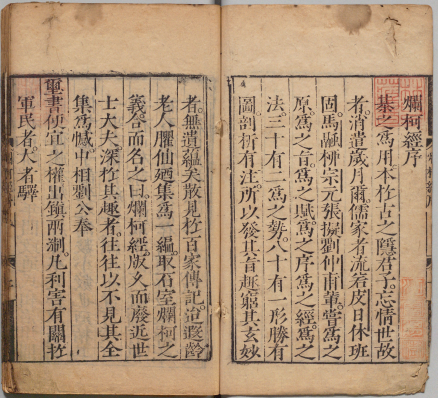 爛柯經序
棊之爲用木於古之隱君子忘情世故
者消遣歲月爾儒家者流若皮日休班
固馬融栁宗元張擬劉仲甫輩嘗爲之
原爲之旨爲之賦爲之序爲之經爲之
法三十有二爲之勢八十有一形勝有
圖剖析有注所以發其旨趣窮其玄妙
者無遺蘊矣散見於百家傳記迨遐齡
老人臞仙廼集爲一編取石室爛柯之
義合而名之曰爛柯經版乆而廢近世
士大夫深於其趣者往往以不見其全
集爲憾中相劉公奉
璽書便宜之權出鎮兩浙凡利害有關於
軍民者大者驛